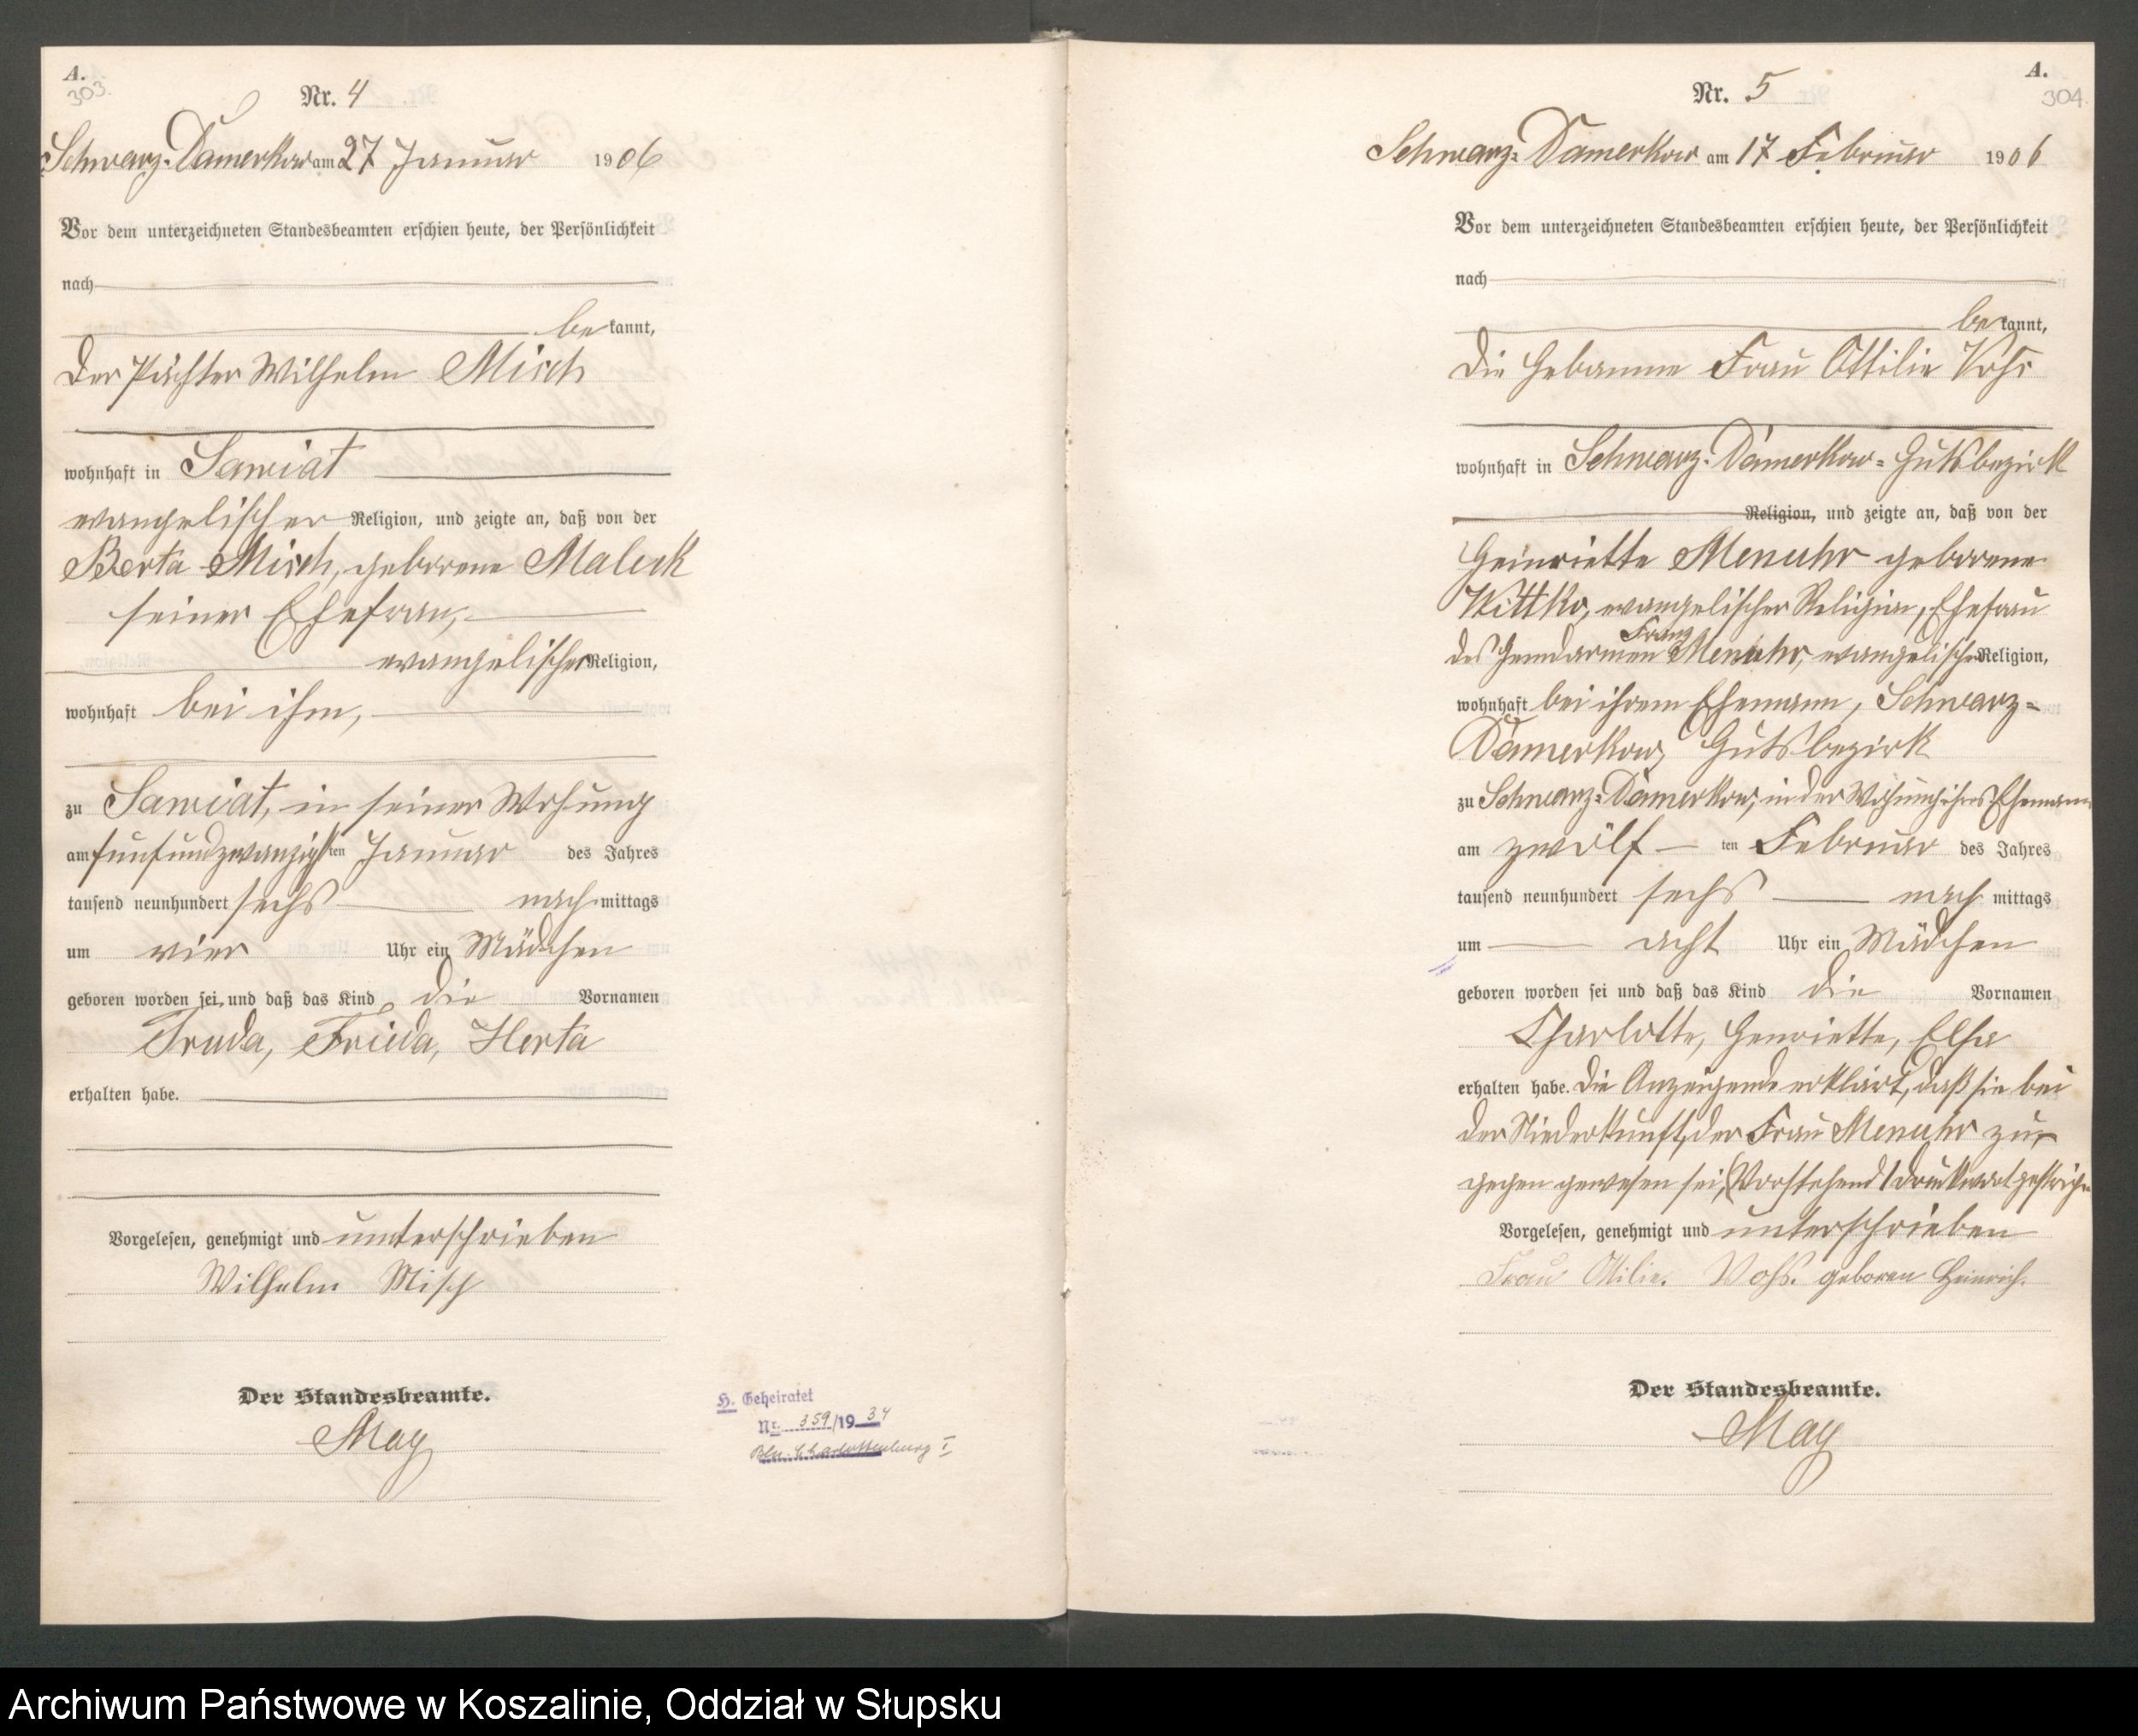 A.
303.
Nr. 4
Schwarz-Damerkow am 27 Januar 1906
Vor dem unterzeichneten Standesbeamten erschien heute, der Persönlichkeit
nach
bekannt,
der Pächter Wilhelm Misch
wohnhaft in Sawiat
evangelischer Religion, und zeigte an, daß von der
Berta Misch, geborene Maleck
seiner Ehefrau,
evangelischer Religion,
wohnhaft bei ihm,
zu Sawiat, in seiner Wohung
am fünfundzwanzigsten Januar des Jahres
tausend neunhundert sechs nachmittags
um vier Uhr ein Mädchen
geboren worden sei, und daß das Kind die Vornamen
Truda, Frieda, Herta
erhalten habe.
Vorgelesen, genehmigt und unterschrieben
Wilhelm Misch
Der Standesbeamte.
May
H. Geheiratet
Nr. 359/1934
Bln. Charlottenburg I
A.
304.
Nr. 5
Schwarz-Damerkow am 17 Februar 1906
Vor dem unterzeichneten Standesbeamten erschien heute, der Persönlichkeit
nach
bekannt,
die Hebamme Frau Ottilie Vohs
wohnhaft in Schwarz-Damerkow-Gutsbezirk
Religion, und zeigte an, daß von der
Heinriette Menuhr geborene
Wittko, evangelischer Religion, Ehefrau
des Gendarmen Franz Menuhr, evangelischer Religion,
wohnhaft bei ihrem Ehemann, Schwarz-
Damerkow, Gutsbezirk
zu Schwarz-Damerkow, in der Wohnung ihres Ehemanns
am zwölften Februar des Jahres
tausend neunhundert sechs nachmittags
um acht Uhr ein Mädchen
geboren worden sei und daß das Kind die Vornamen
Charlotte, Henriette, Elsa
erhalten habe. Die Anzeigende erklärt, daß sie bei
der Niederkunft der Frau Menuhr zu-
gegen gewesen sei, (Vorstehend 1 Druckwort gestrichen
Vorgelesen, genehmigt und unterschrieben
Frau Ottilie. Vohs. geboren Heinrich.
Der Standesbeamte.
May
Archiwum Państwowe w Koszalinie, Oddział w Słupsku